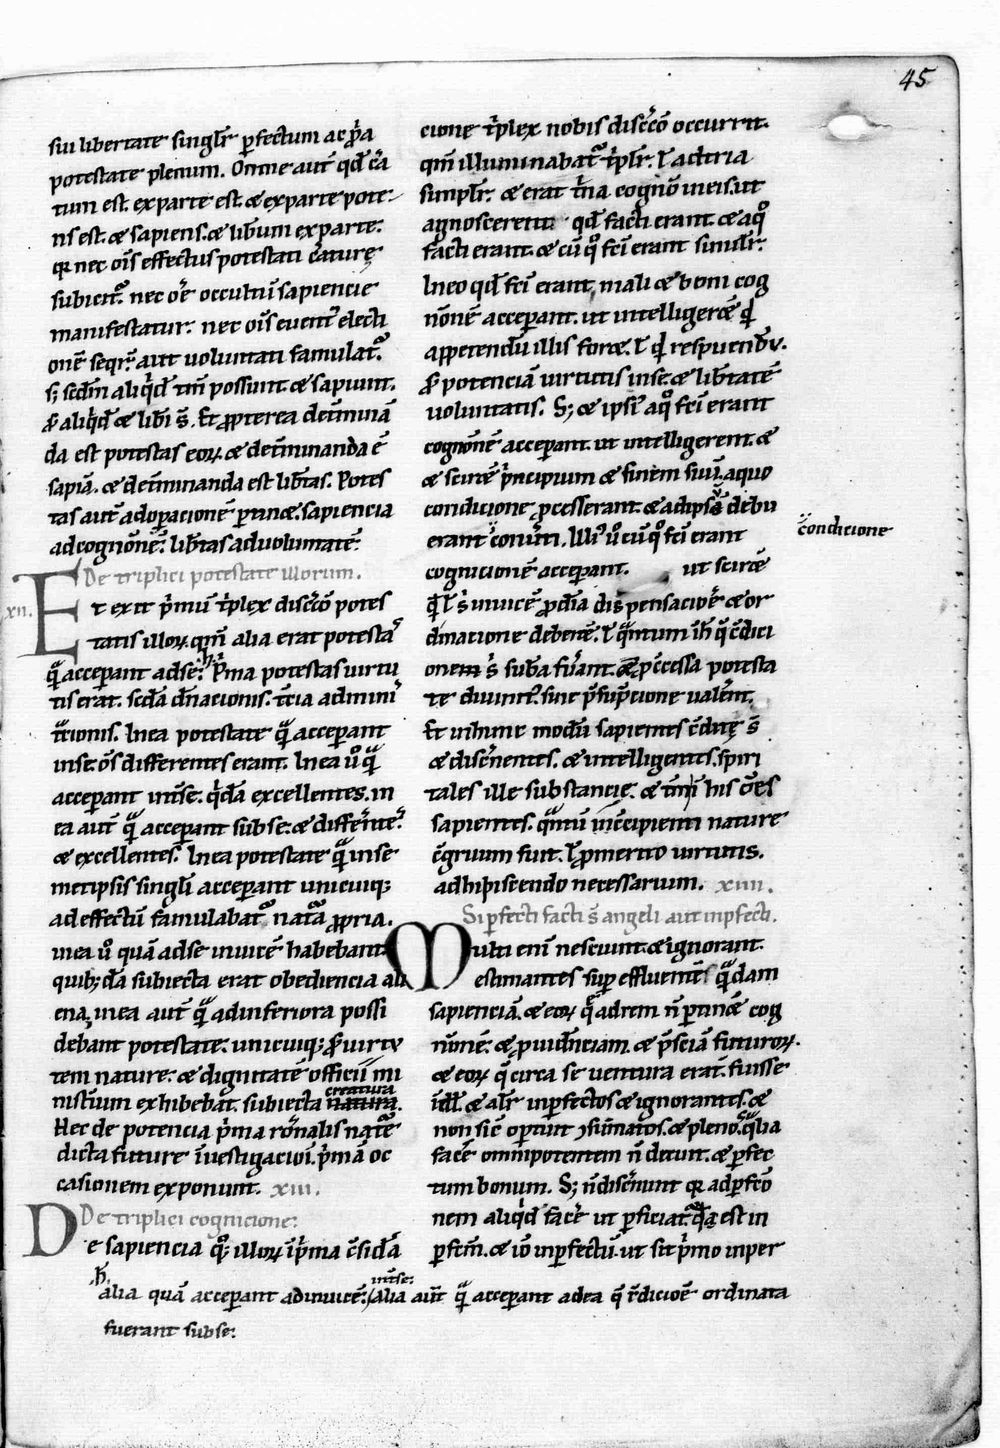 45
sui libertate singlr̄ ꝑfectum ac p̄ͣa
potestate plenum. Omne aut̄ qd̄ c̄a
tum est. ex parte est. ⁊ ex parte pote
ns est. ⁊ sapiens. ⁊ libum ex parte.
qr nec oīs effectus potestati c̄aturę
subicit᷑. nec oē occultū sapiencie
manifestatur. nec oīs euent᷑ electi
onē seqr̄. aut uoluntati famulat᷑.
s; scdm aliqͥd tm̄ possunt ⁊ sapiunt.
ꝓ aliqͥd ⁊ libi s̄. Et ꝓpterea det̄minā
da est potestas eoꝝ. ⁊ det̄minanda ē
sapiā. ⁊ det̄minanda est lib̄tas. Potes
tas aut̄ ad oꝑacionē ꝑtinet. sapiencia
ad cognōnē. lib̄tas ad uoluntatē.
De triplici potestate illorum.
xii.
Et erit pͥmū tͥplex discͦcō potes
tatis illoꝝ. qm̄ alia erat potestas
qͣ acceꝑant ad se. Pͥma potestas uirtu
tis erat. scdā dn̄acionis. t̄cia admini
st̄cionis. In ea potestate qͣ acceꝑant
in se. oīs differentes erant. In ea uͦ qͣ
acceꝑant int̄se. qͥdā excellentes. in
ea aut̄ qͣ acceꝑant sub se. ⁊ differēte᷑
⁊ excellentes. In ea potestate qͣ in se
metipsis singli acceꝑant unicuiq;
ad effectū famulabat᷑ natͣ ꝓpria.
in ea uͦ quā ad se inuicē habebant
quib;dā subiecta erat obediencia ali
ena. in ea aut̄ qͣ ad inferiora possi
debant potestate. unicuiq; ꝓ uirtu
tem nature. ⁊ dignitatē officii mi
creatura
nist̄ium exhibebat. subiecta natura.
Hec de potencia pͥma rōnalis natͤ
dicta future īuestigacioī. pͥmā oc
casionem exponunt. xiii.
De triplici cognicione:
De sapiencia qͦ; illoꝝ ī pͥma c̄sidā
h̄
int̄se:
alia quā acceꝑant ad inuicē. alia aut̄ qͣ acceꝑant ad ea q̄ c̄dicioē ordinata
fuerant sub se:
cione tͥplex nobis discͦcō occurrit.
qm̄ illuminabat᷑ tͥplr̄. ɫ ad tria
simplr̄. ⁊ erat tͥna cognō in eis. ut
agnoscerent qd̄ facti erant. ⁊ a qͦ
facti erant. ⁊ cū qͦ fc̄i erant simlr̄.
In eo qd̄ fc̄i erant. mali ⁊ boni cog
nōnē acceꝑant. ut intelligerēt qͥd
appetendū illis foret. ɫ qͥd respuendū.
ꝓ potenciā uirtutis in se. ⁊ lib̄tatē
uoluntatis. S; ⁊ ipsi᷑ a qͦ fc̄i erant
cognōnē acceꝑant. ut intelligerent. ⁊
⁊ scirēt pͥncipium ⁊ finem suū. a quo
condicione ꝓcesserant. ⁊ ad ips̄ debu
condicione
erant conūti. Illi᷑ uͦ cū qͦ fc̄i erant
cognicionē acceꝑant. ut scirēt
qͥd ɫ s̄ inuicē ꝓ dīa dispensacioē ⁊ or
dinatione deberēt. ɫ qͣntum īh̄ q̄ c̄dici
onem s̄ subͣ fuānt. ⁊ pͥcessa potesta
te diuinit᷑. sine pͥsūpcione ualerēt.
Et in hunc modū sapientes c̄ditę s̄
⁊ discnentes. ⁊ intelligentes. spiri
tales ille substancie. ⁊ tm̄ in his oēs
sapientes. qͣntū incipienti nature
c̄gruum fuit. ɫ ꝓ merito uirtutis.
adhipiscendo necessarium. xiiii.
Si ꝑfecti facti s̄ angeli aut inꝑfecti.
Multi enī nesciunt. ⁊ ignorant.
estimantes suꝑ effluentē qͣdam
sapienciā. ⁊ eoꝝ qͣ ad rem n̄ ꝑtinēt cog
nōnē. ⁊ ꝓuidenciam. ⁊ pͥsciā futuroꝝ.
⁊ eoꝝ q̄ circa se uentura erāt. fuisse
īdd̄. ⁊ alr̄ inꝑfectos. ⁊ ignorantes. ⁊
non sic̄ optuit ꝯsūmatos. ⁊ plenos. qͣlia
facē omnipotentem n̄ decuit. ⁊ ꝑfec
tum bonum. S; n̄ discͤnunt qr ad ꝑfecō
nem aliqͥd facē ut ꝑficiat᷑ qͣ est in
ꝑfcm̄. ⁊ iō inꝑfectū. ut sit pͥmo inꝑer